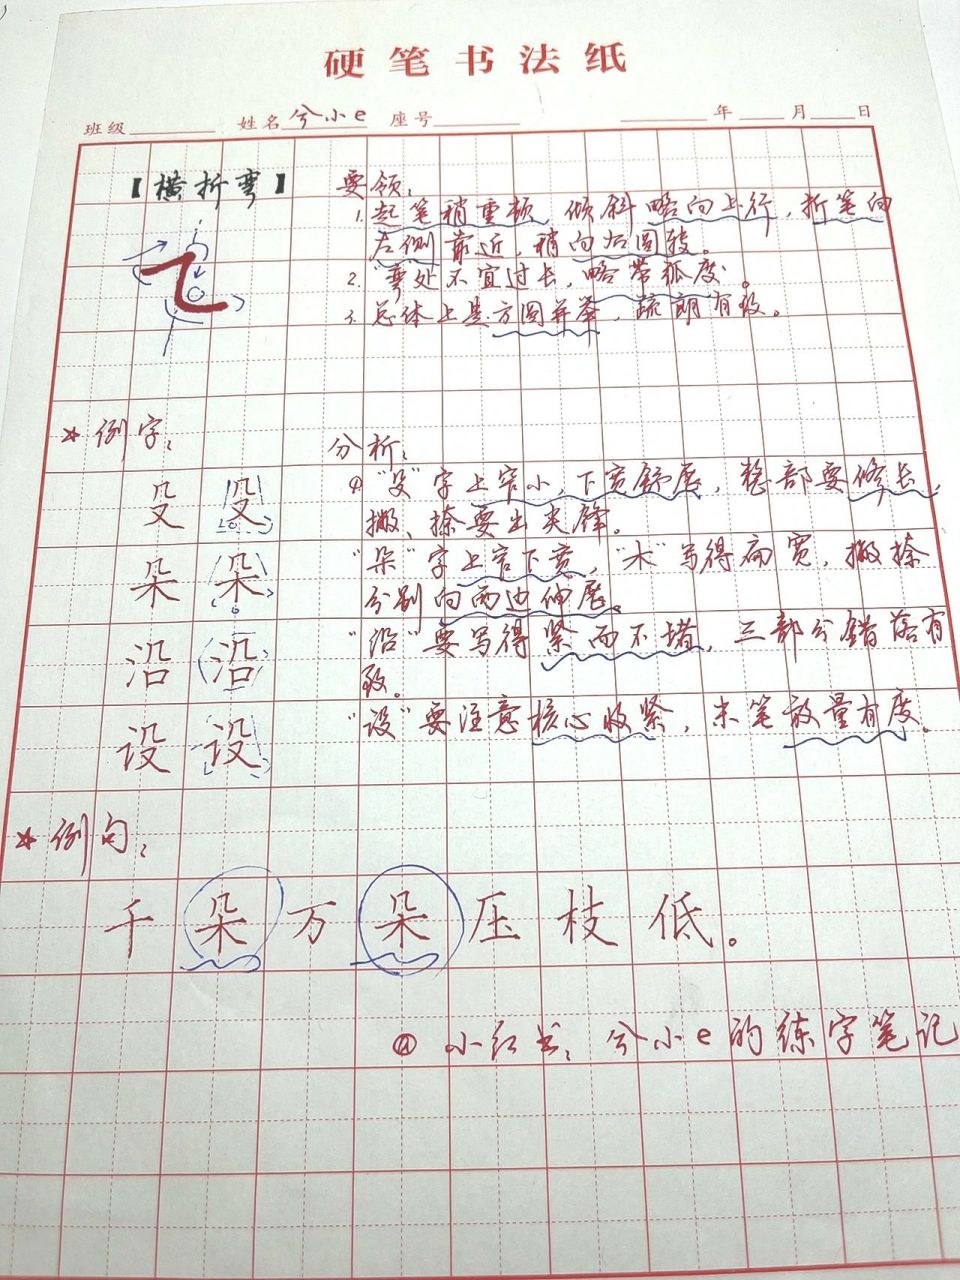 硬笔书法纸
班级 姓名 兮小e 座号 年 月 日
【横折弯】
要领：
1. 起笔稍重顿，倾斜略向上行，折笔向
左侧靠近，稍向右圆转。
2. 弯处不宜过长，略带弧度。
3. 总体上是方圆并济，疏朗有致。
★例字：
分析：
殳 殳
"殳"字上窄小，下宽舒展，整部要修长，
撇、捺要出尖锋。
朵 朵
"朵"字上窄下宽，"木"写得扁宽，撇捺
分别向两边伸展。
沿 沿
"沿"要写得紧而不堵，三部分错落有
致。
设 设
"设"要注意核心收紧，末笔放量有度。
★例句：
千朵万朵压枝低。
@小红书：兮小e的练字笔记